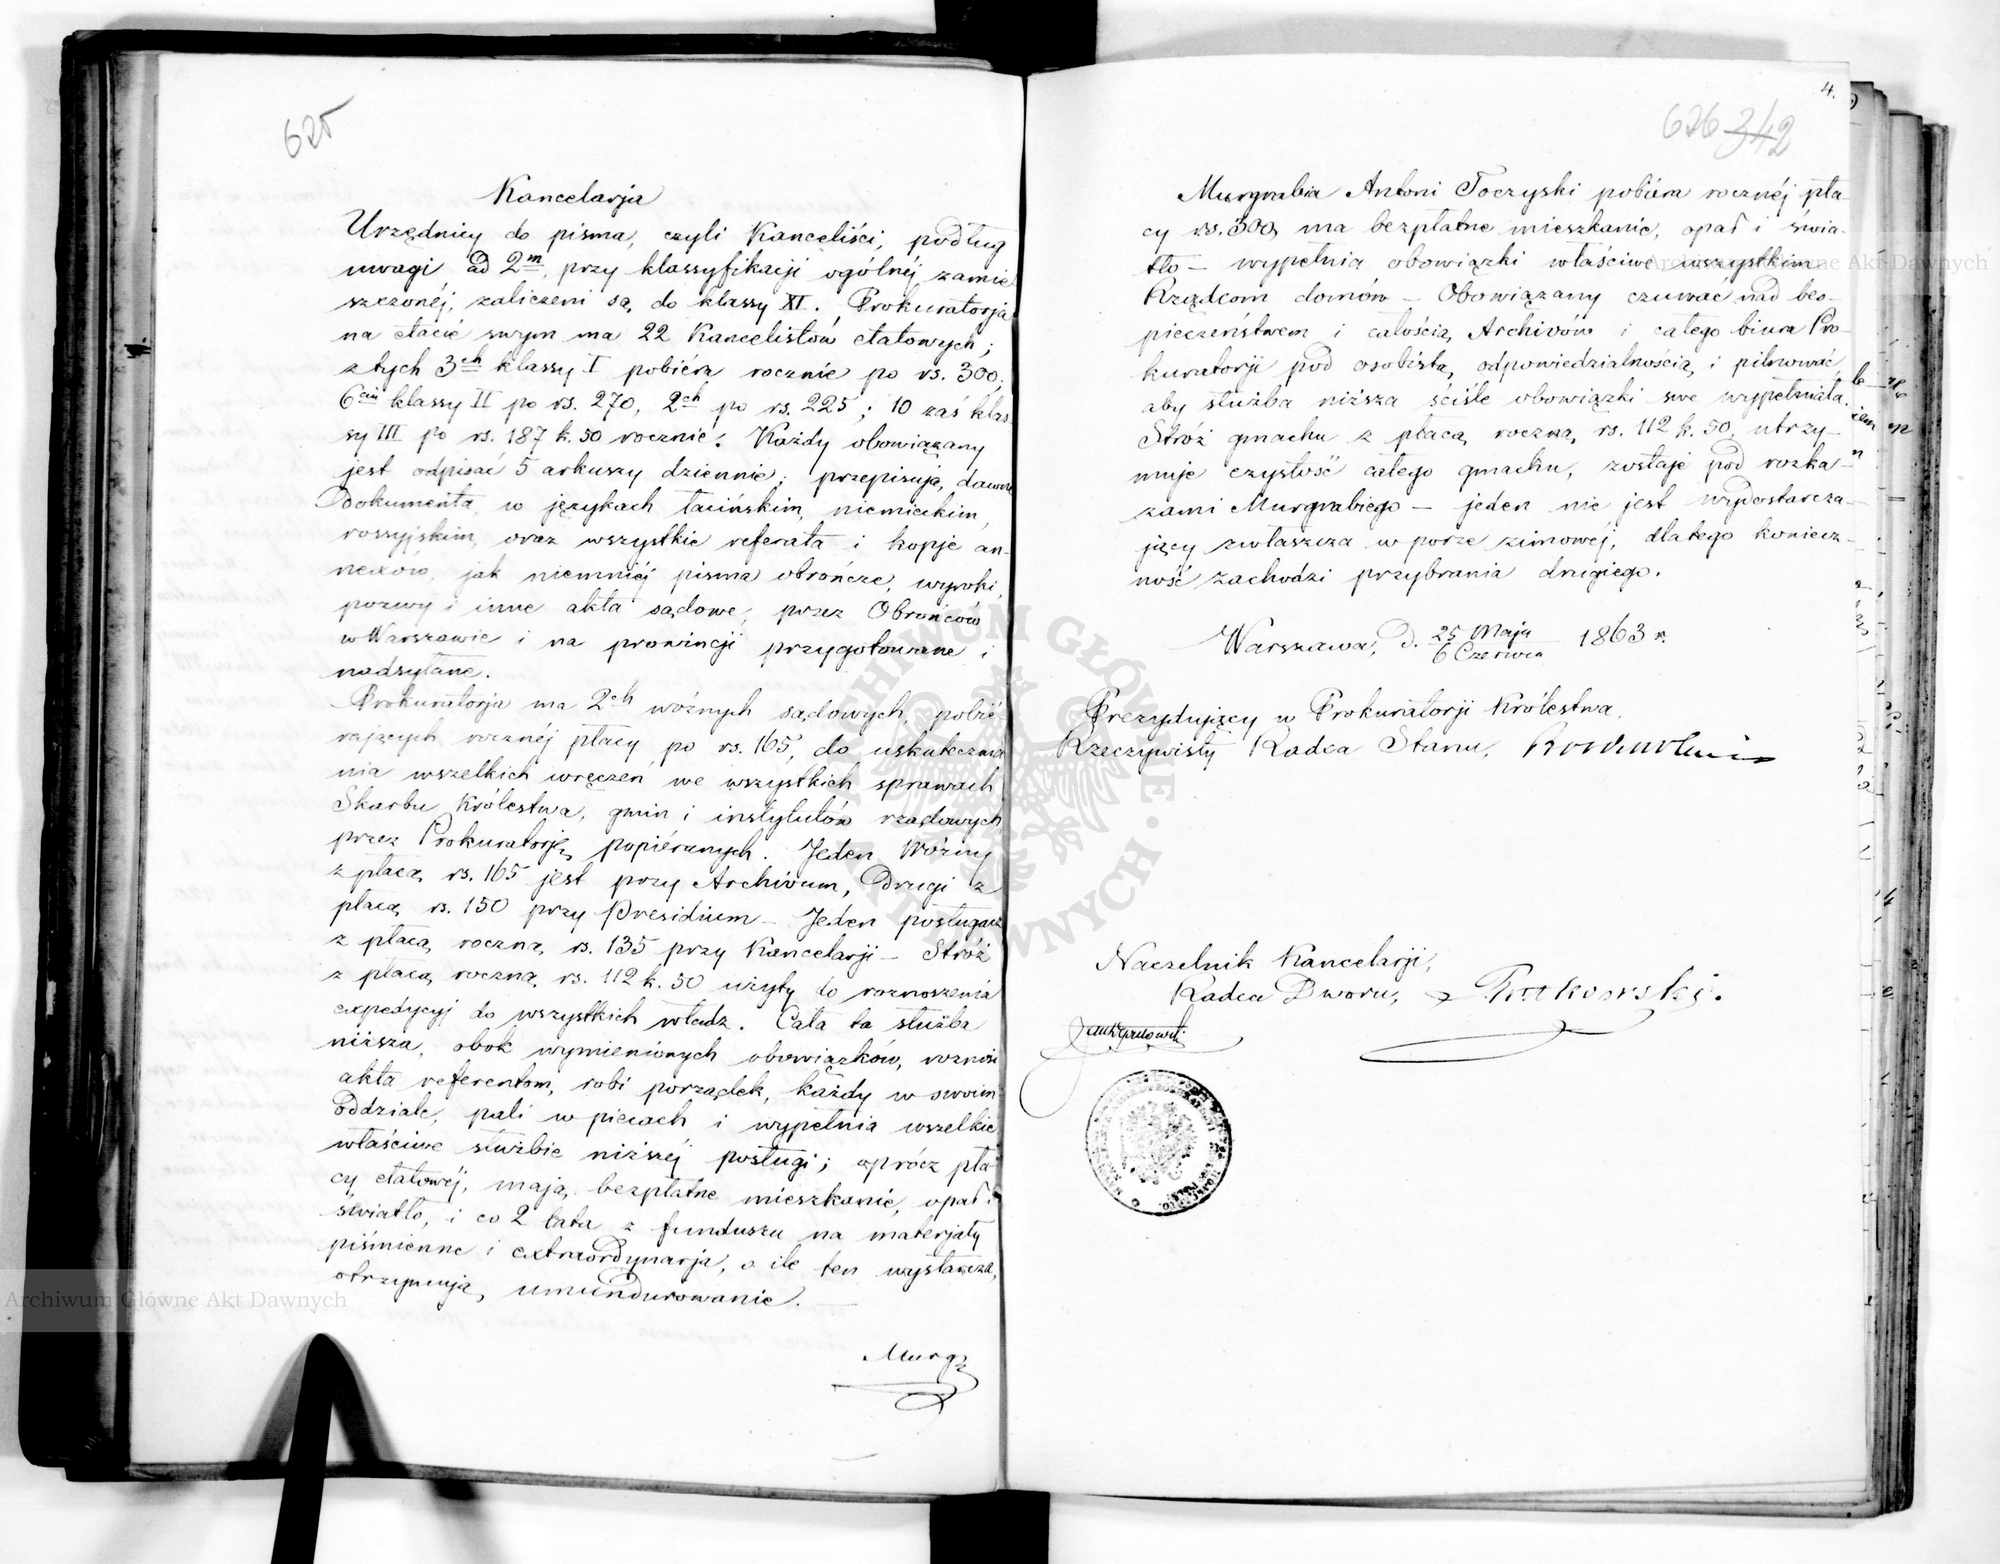 625
Kancelarja
Urzędnicy do pisma, czyli Kanceliści, podług
uwagi ad 2m. przy klassyfikacji ogólnéj zamie
szczonéj, zaliczeni są do klassy XI. Prokuratorja
na etacie swym ma 22 Kancelistów etatowych;
z tych 3ch klassy I pobiéra rocznie po rs. 300;
6ciu klassy II po rs. 270, 2ch po rs. 225; 10 zaś klas
sy III po rs. 187 k. 50 rocznie. Każdy obowiązany
jest odpisać 5 arkuszy dziennie; przepisują dawne
Dokumenta w językach łacińskim, niemieckim,
rossyjskim, oraz wszystkie referata i kopje an-
nexów, jak niemniéj pisma obrończe, wyroki,
pozwy i inne akta sądowe, przez Obrońców
w Warszawie i na prowincji przygotowane i
nadsyłane.
Prokuratorja ma 2ch woźnych sądowych, pobié-
rających rocznéj płacy po rs. 165, do uskutecznia
nia wszelkich wręczeń we wszystkich sprawach
Skarbu Królestwa, gmin i instytutów rządowych
przez Prokuratorję popiéranych. Jeden Woźny
z płacą rs. 165 jest przy Archivum, Drugi z
płacą rs. 150 przy Presidium – Jeden posługacz
z płacą roczną rs. 135 przy Kancelarji – Stróż
z płacą roczną rs. 112 k. 50 użyty do roznoszenia
expedycyj do wszystkich władz. Cała ta służba
niższa, obok wymienionych obowiązków, roznosi
akta referentom, robi porządek, każdy w swoim
Oddziale, pali w piecach i wypełnia wszelkie
właściwe służbie niższéj posługi; oprócz pła
cy etatowéj, mają bezpłatne mieszkanie, opał i
światło, i co 2 lata z funduszu na materjały
piśmienne i extraordynarja, o ile ten wystarcza,
otrzymują umundurowanie.
Murg
4.
626 342
Murgrabia Antoni Toczyski pobiéra rocznéj pła-
cy rs. 300, ma bezpłatne mieszkanie, opał i świa-
tło – wypełnia obowiązki właściwe wszystkim
Rządcom domów – Obowiązany czuwać nad bes-
pieczeństwem i całością Archivów i całego biura Pro-
kuratorji pod osobistą odpowiedzialnością i pilnować,
aby służba niższa ściśle obowiązki swe wypełniała.
Stróż gmachu z płacą roczną rs. 112 k. 50, utrzy-
muje czystość całego gmachu, zostaje pod rozka-
zami Murgrabiego – jeden nie jest wydostarcza-
jący zwłaszcza w porze zimowéj, dlatego koniecz-
ność zachodzi przybrania drugiego.
Warszawa, d. 25 Maja 1863 r.
6 Czerwca
Prezydujący w Prokuratorji Królestwa
Rzeczywisty Radca Stanu,
Naczelnik Kancelarji,
Radca Dworu,
ARCHIWUM GŁÓWNE AKT DAWNYCH
Archiwum Główne Akt Dawnych
Archiwum Główne Akt Dawnych